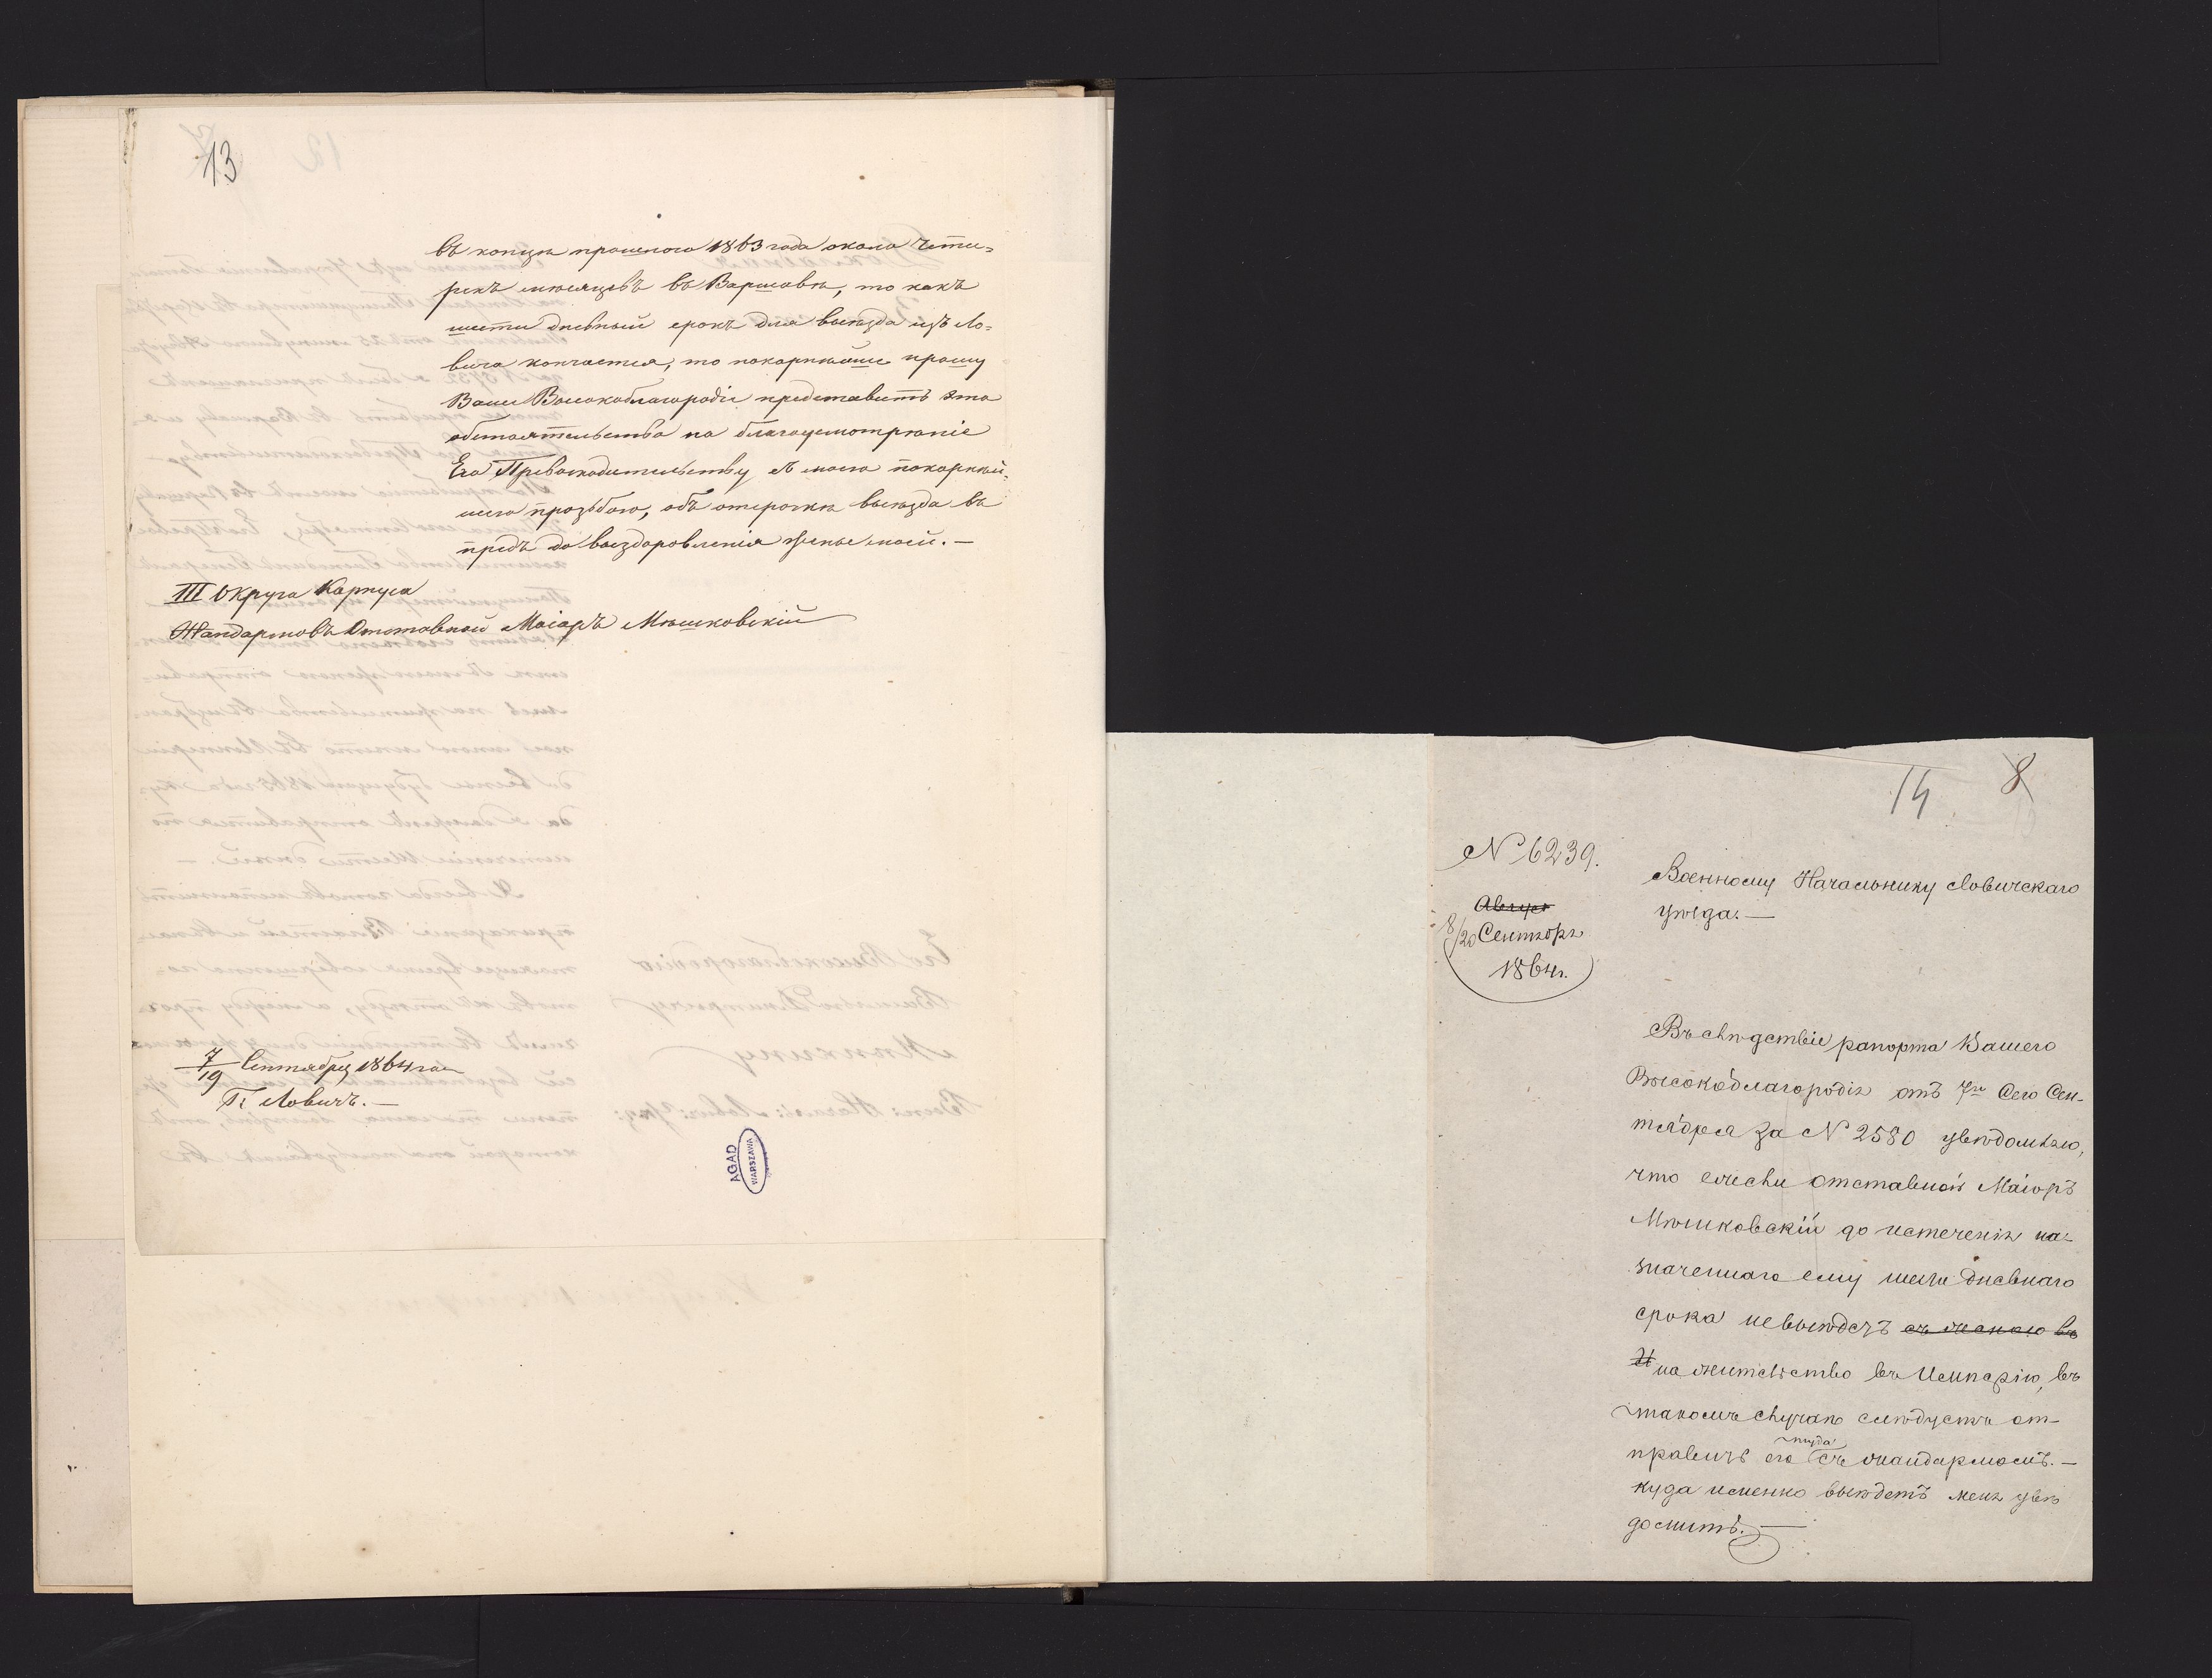 13
въ концѣ прошлого 1863 года около Четы=
рехъ мѣсяцовъ въ Варшавѣ, то какъ
шести дневный срокъ для выѣзда изъ Ло=
вича кончается, то покорнѣйше прошу
Ваше Высокоблагородіе представить это
обстоятельство на благоусмотрѣніе
Его Превосходительству съ моею покорнѣй=
шею прозьбою, объ отсрочкѣ выѣзда въ
предъ до выздоровленія жены моей. —
III Округа Корпуса
Жандармовъ Отставной Маіоръ Мѣшковскій
7/19 Сентября 1864 года
Г. Ловичъ. —
AGAD
WARSZAWA
14 8
№ 6239.
Август
8/20 Сентября
1864 г.
Военному Начальнику Ловичскаго
уѣзда. —
Въ слѣдствіе рапорта Вашего
Высокоблагородія отъ 7го Сего Сен-
тября за № 2580 увѣдомляю,
что если отставной Маіоръ
Мѣшковскій до истеченія на-
значеннаго ему шести дневнаго
срока невыѣдетъ
на жительство въ Имперію, въ
такомъ случаѣ слѣдуетъ от-
туда
править его съ жандармомъ. —
куда именно выѣдетъ меня увѣ
домить. —